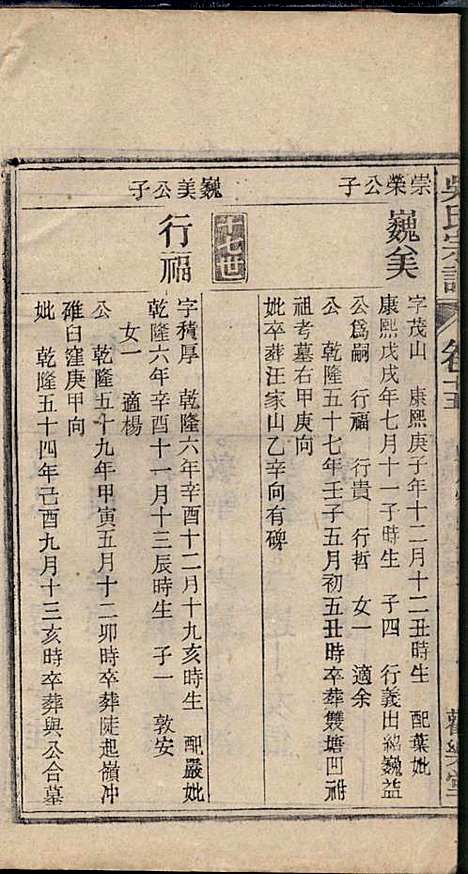 吳氏宗譜
卷十五
崇榮公子
巍美
字茂山 康熙庚子年十二月十二丑時生 配葉妣
康熙戊戌年七月十一子時生 子四 行義出紹巍益
公為嗣 行福 行貴 行哲 女一 適余
公 乾隆五十七年壬子五月初五丑時卒葬雙塘凹祔
祖考墓右甲庚向
妣卒葬汪家山乙辛向有碑
十七世
巍美公子
行福
字積厚 乾隆六年辛酉十二月十九亥時生 配嚴妣
乾隆六年辛酉十一月十三辰時生 子一 敦安
女一 適楊
公 乾隆五十九年甲寅五月十二卯時卒葬陡起嶺冲
碓臼窪庚甲向
妣 乾隆五十四年己酉九月十三亥時卒葬與公合墓